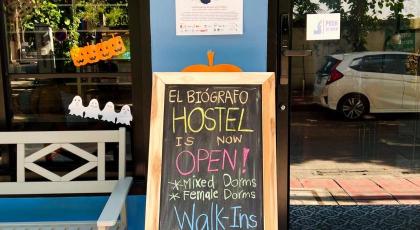 EL BIÓGRAFO
HOSTEL
IS NOW
OPEN!
*Mixed Dorms
*Female Dorms
Walk-Ins